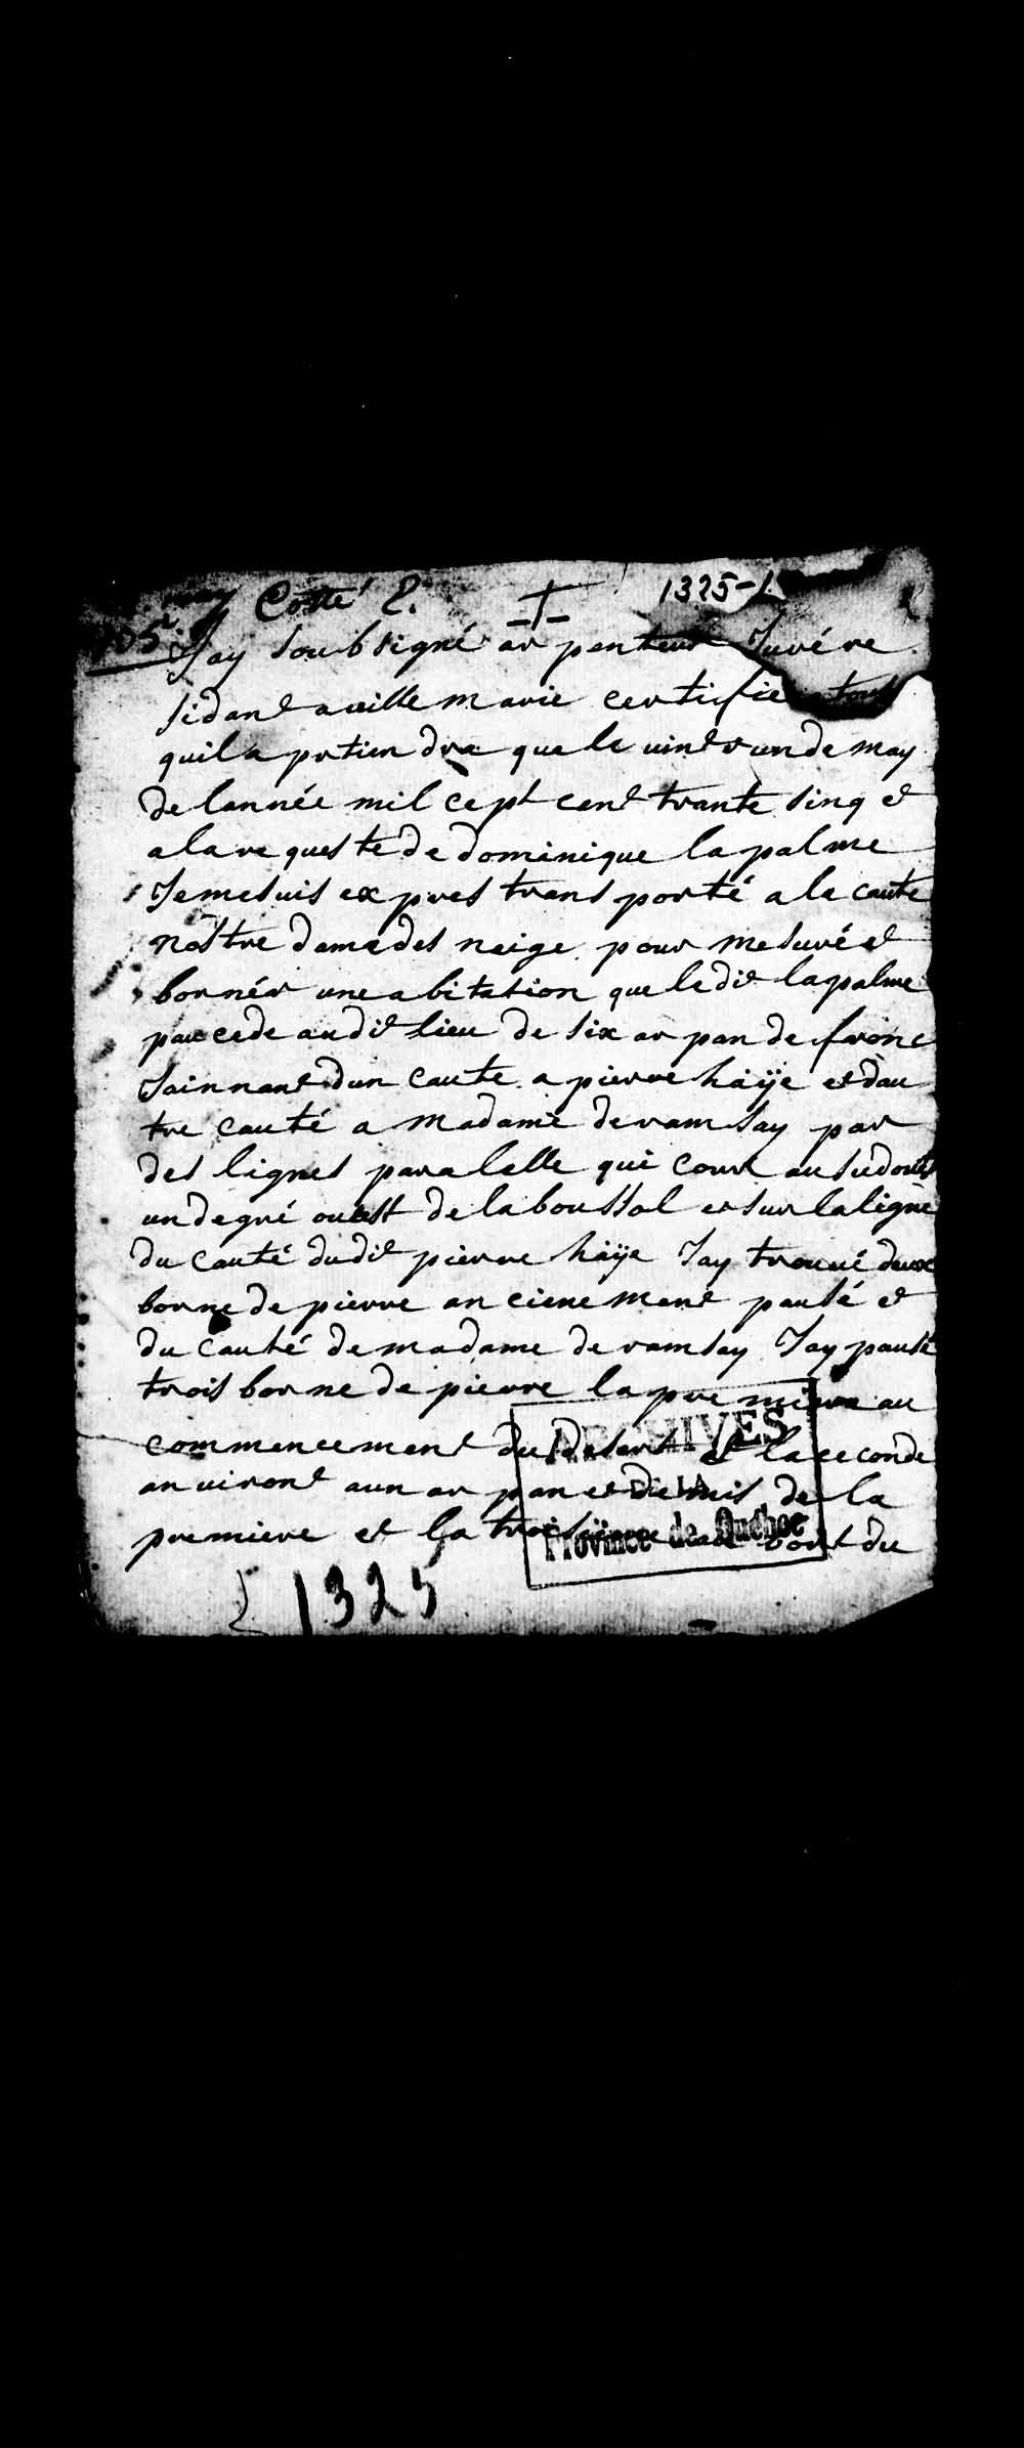 Costé 2. 1325-1
Jay soubsigné ar penteur Juré re
sidant a ville marie certifie a tous
quil a partien dra que le vint et un de may
de lannée mil ce pt cent trante sinq et
a la re ques te de dominique la palme
Je me suis ex pres trans porté a la caute
nostre dame des neige pour mesuré et
bornér une a bitation que le dit lapalme
paucede au dit lieu de six ar pan de fronc
Joinnant dun cauté a pierre haÿe et dau
tre cauté a madame de ramsay par
des lignes paralelle qui cour au sudouest
un degré ouest de la boussol et sur la ligne
du cauté du dit pierre haÿe Jay trouué deux
borne de pierre an ciene mant pausé et
du cauté de madame de ramsay Jay pausé
trois borne de pierre la pre miere au
commencement du desert et la ceconde
an viront a un ar pan et demis de la
premiere et la troisieme bort du
ARCHIVES
DE LA
Province de Québec
1325